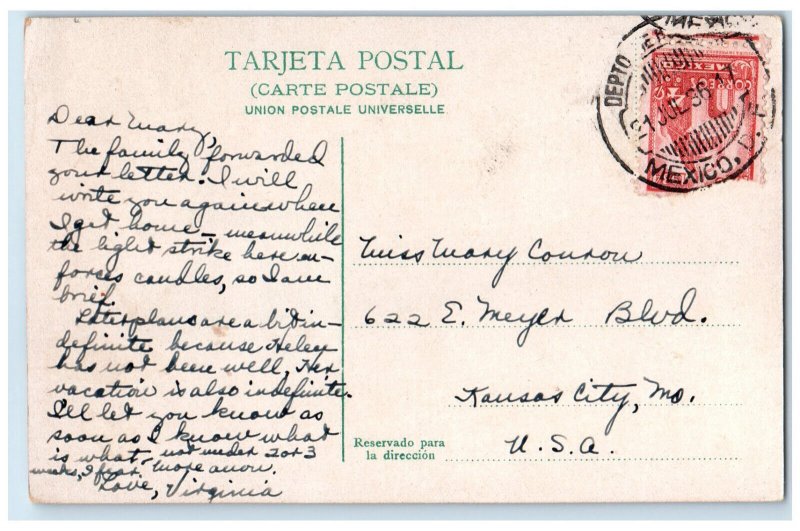 TARJETA POSTAL
(CARTE POSTALE)
UNION POSTALE UNIVERSELLE
DEPTO
MEXICO
21 JUL 36 17
MEXICO, D.
CORREOS
MEXICO
Dear Mary,
The family forwarded
your letter. I will
write you again when
I get home — meanwhile
the light strike here en-
forces candles, so I am
brief.
Later plans are a bit in-
definite because Helen
has not been well, Her
vacation is also indefinite.
I'll let you know as
soon as I know what
is what, not under 2 or 3
weeks, I fear, more anon.
Love, Virginia
Miss Mary Conron
622 E. Meyer Blvd.
Kansas City, Mo.
U.S.A.
Reservado para
la dirección